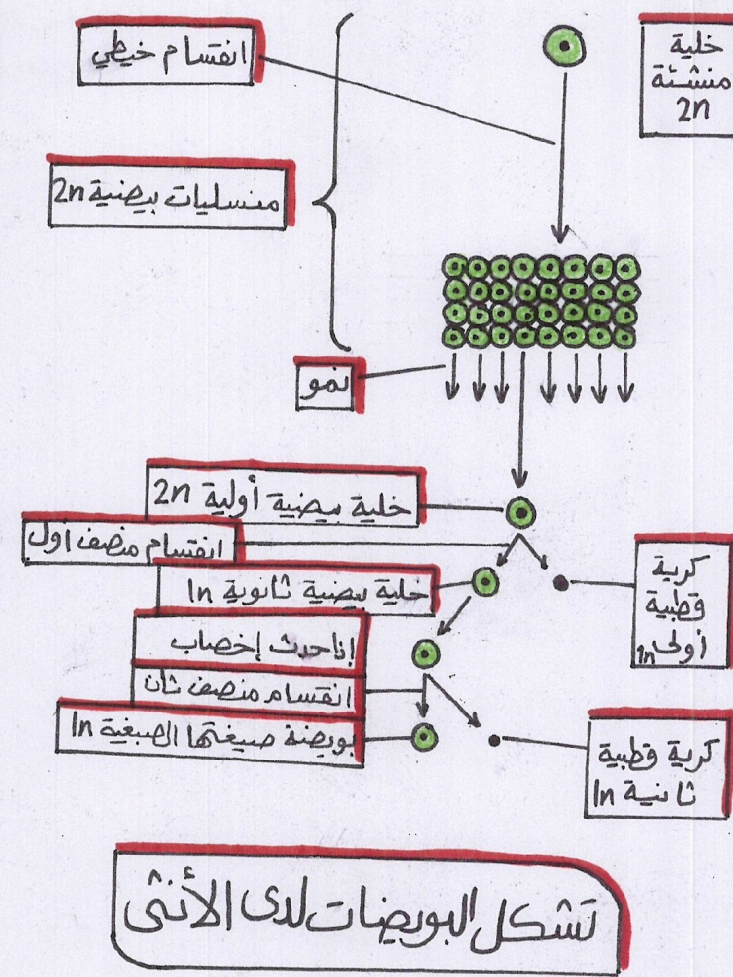 خلية
منشئة
2n
انقسام خيطي
منسليات بيضية 2n
نمو
خلية بيضية أولية 2n
انقسام منصف اول
كرية
قطبية
أولى 1n
خلية بيضية ثانوية 1n
إذا حدث إخصاب
انقسام منصف ثان
بويضة صيغتها الصبغية 1n
كرية قطبية
ثانية 1n
تشكل البويضات لدى الأنثى